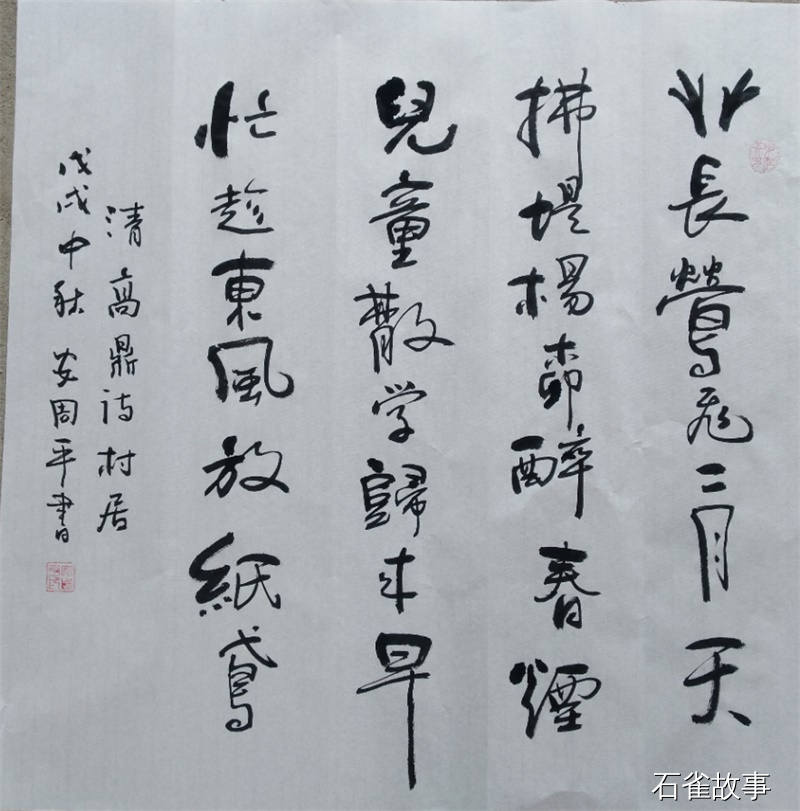 艸長鶯飛二月天
拂堤楊柳醉春煙
兒童散学歸来早
忙趁東風放紙鳶
清高鼎诗村居
戊戌中秋安周平書
石雀故事